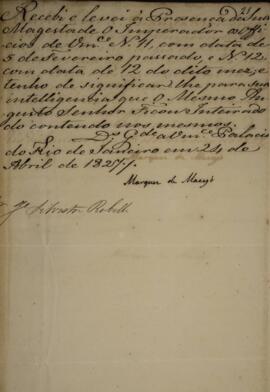 Recebi e levei á Presença de Sua
Magestade O Imperador os Offi-
cios de Vmce Nº 11, com data de
5 de Fevereiro passado, e Nº 12
com data de 12 do dito mez, e
tenho de significar lhe para sua
intelligencia que O Mesmo Au-
gusto Senhor Ficou Inteirado
do contendo nos mesmos.
Ds Gde a Vmce Palacio
do Rio de Janeiro em 24 de
Abril de 1827.
Marquez de Maceyó
Sr Silvestre Rebello